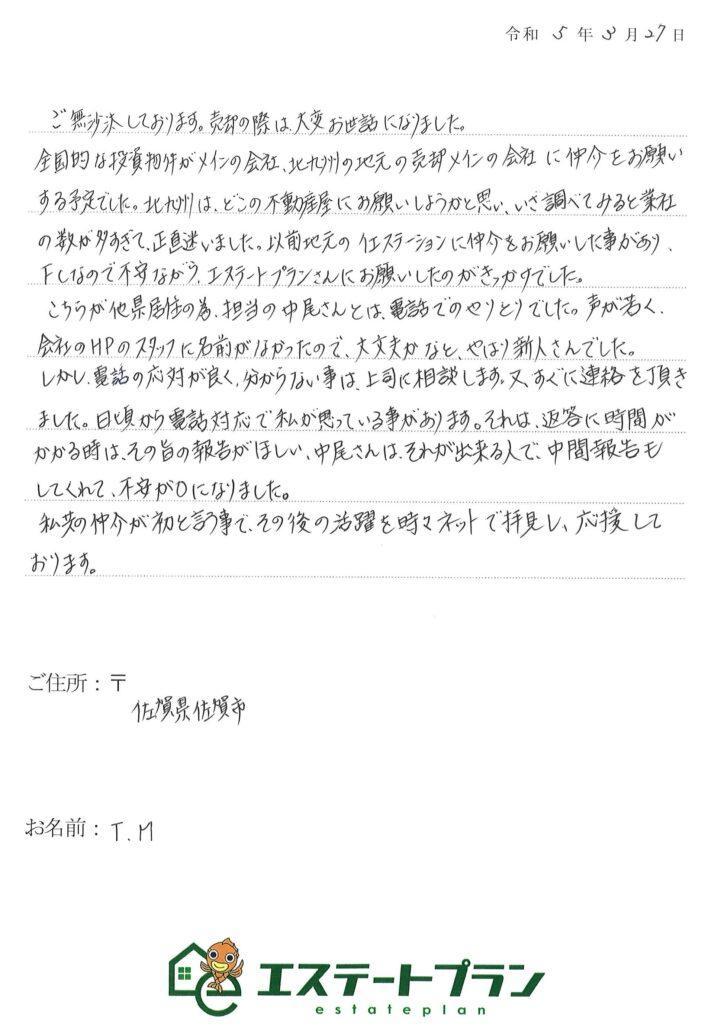 令和 5 年 3 月 27 日
ご無沙汰しております。売却の際は、大変お世話になりました。
全国的な投資物件がメインの会社、北九州の地元の売却メインの会社に仲介をお願い
する予定でした。北九州は、どこの不動産屋にお願いしようかと思い、いざ調べてみると業社
の数が多すぎて、正直迷いました。以前地元のイエステーションに仲介をお願いした事があり、
FCなので不安ながら、エステートプランさんにお願いしたのがきっかけでした。
こちらが他県居住の為、担当の中尾さんとは、電話でのやりとりでした。声が若く、
会社のHPのスタッフに名前がなかったので、大丈夫かなと、やはり新人さんでした。
しかし、電話の応対が良く、分からない事は、上司に相談します。又、すぐに連絡を頂き
ました。日頃から電話対応で私が思っている事があります。それは、返答に時間が
かかる時は、その旨の報告がほしい、中尾さんは、それが出来る人で、中間報告も
してくれて、不安が0になりました。
私共の仲介が初と言う事で、その後の活躍を時々ネットで拝見し、応援して
おります。
ご住所：〒
佐賀県佐賀市
お名前：T.M
エステートプラン
estateplan